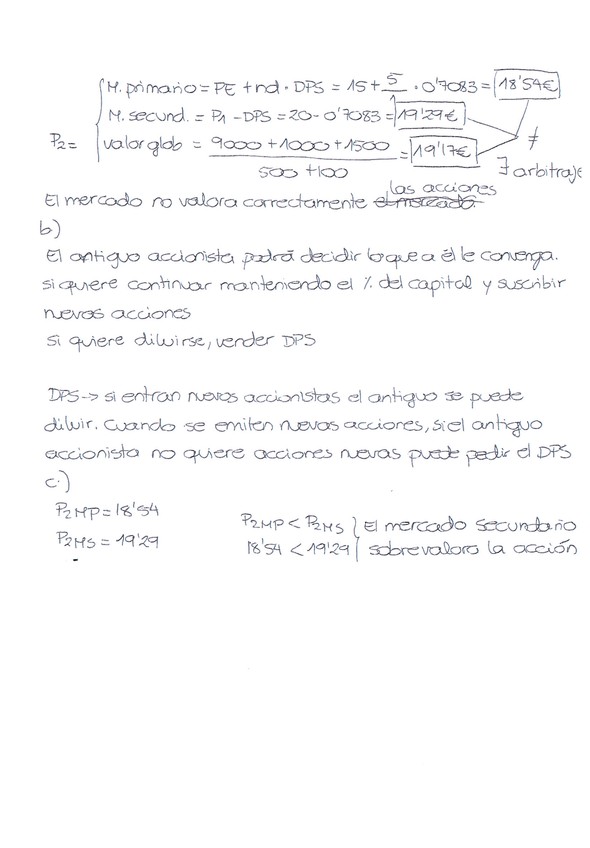 M. primario = PE + nd · DPS = 15 + 5/1 · 0'7083 = 18'54€
M. secund. = P1 - DPS = 20 - 0'7083 = 19'29€
P2 = valor glob = 9000 + 1000 + 1500 / 500 + 100 = 19'17€ ≠
∃ arbitraje
El mercado no valora correctamente las acciones
b)
El antiguo accionista podrá decidir lo que a él le convenga.
si quiere continuar manteniendo el % del capital y suscribir
nuevas acciones
si quiere diluirse, vender DPS
DPS -> si entran nuevos accionistas el antiguo se puede
diluir. Cuando se emiten nuevas acciones, si el antiguo
accionista no quiere acciones nuevas puede pedir el DPS
c.)
P2MP = 18'54
P2MS = 19'29
P2MP < P2MS } El mercado secundario
18'54 < 19'29 } sobrevalora la acción